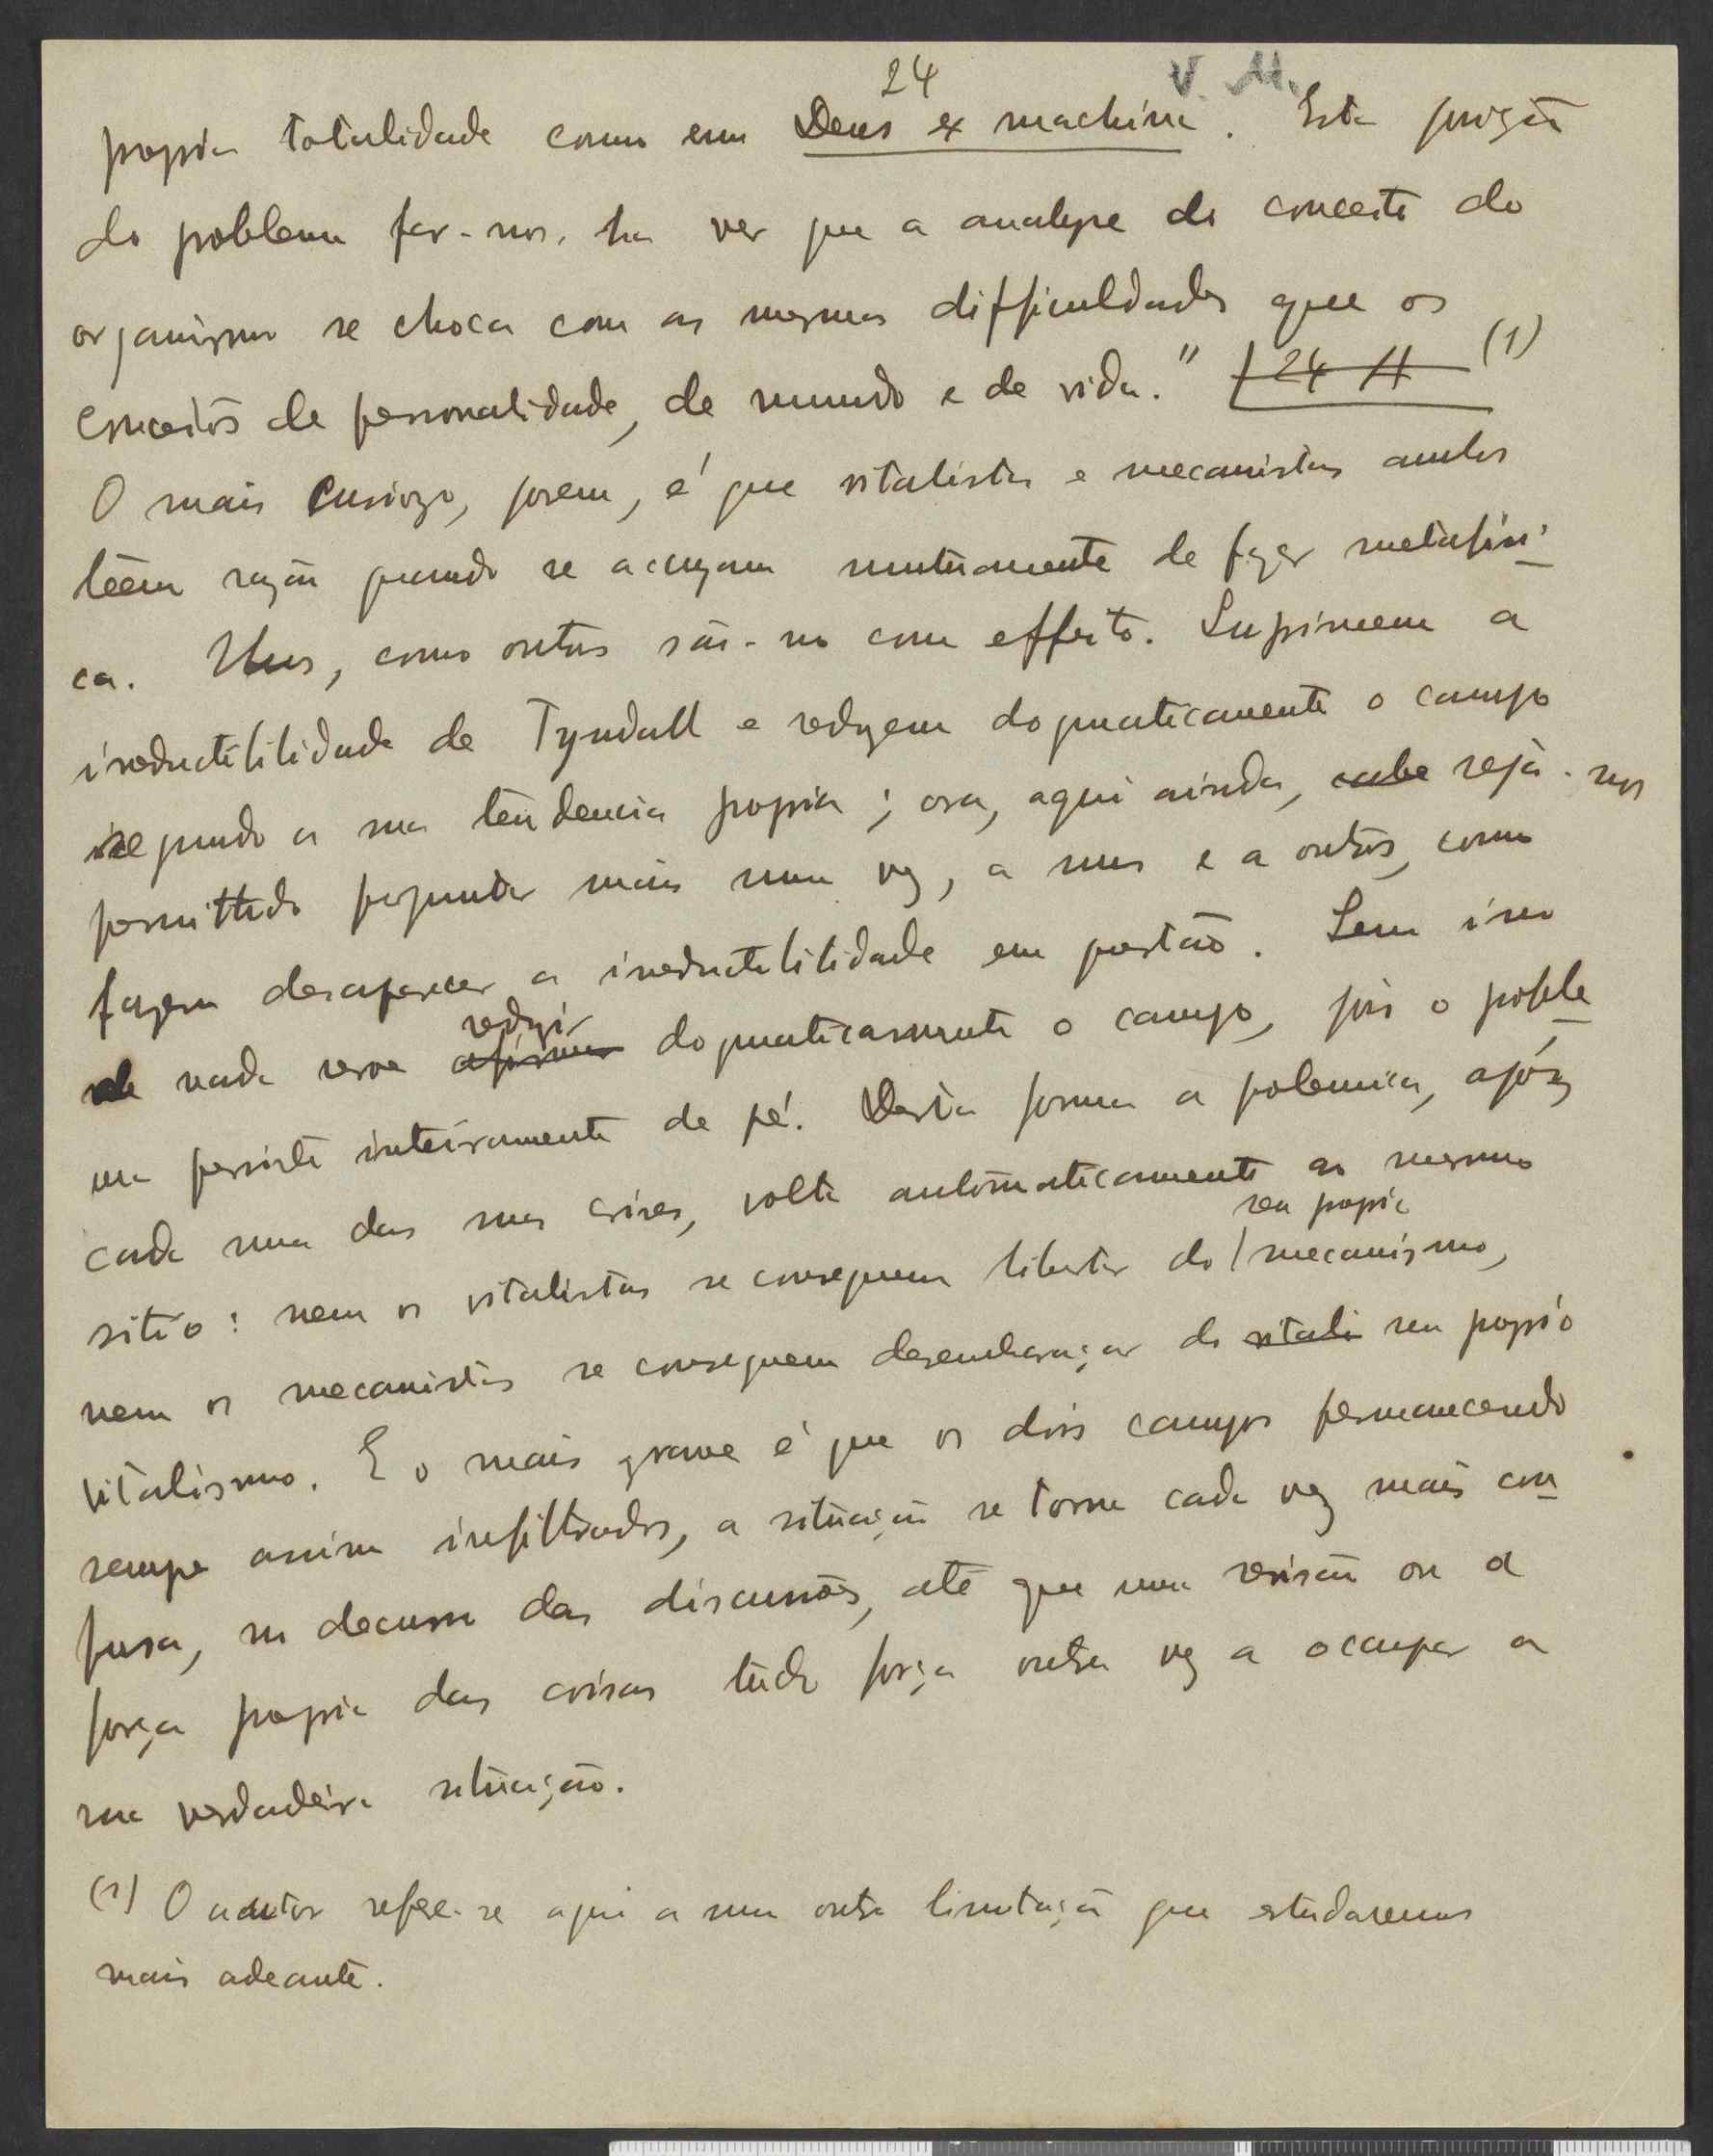 24 V. M.
propria totalidade como em Deus ex machina. Esta posição
do problema far-nos-ha ver que a analyse do conceito do
organismo se choca com as mesmas difficuldades que os
conceitos de personalidade, de mundo e de vida." 24 (1)
O mais curiozo, porem, é que vitalistas e mecanistas ambos
têem razão quando se accuzam mutuamente de fazer metafisi-
ca. Uns, como outros são-no com effeito. Suprimem a
irreductibilidade de Tyndall e reduzem dogmaticamente o campo
segundo a sua tendencia propria; ora, aqui ainda, cabe seja-nos
permittido perguntar mais uma vez, a uns e a outros, como
fazem desaparecer a irreductibilidade em questão. Sem isso
de nada serve afirmar reduzir dogmaticamente o campo, pois o proble-
ma persiste inteiramente de pé. Desta forma a polemica, apóz
cada uma das suas crises, volta automaticamente ao mesmo
sitio: nem os vitalistas se conseguem libertar do seu proprio mecanismo,
nem os mecanistas se conseguem desembaraçar do vitali seu proprio
vitalismo. E o mais grave é que os dois campos permanecendo
sempre assim infiltrados, a situação se torna cada vez mais con-
fusa, no decurso das discussões, até que uma revisão ou a
força propria das coisas tudo força outra vez a ocupar a
sua verdadeira situação.
(1) O autor refere-se aqui a uma outra limitação que estudaremos
mais adeante.